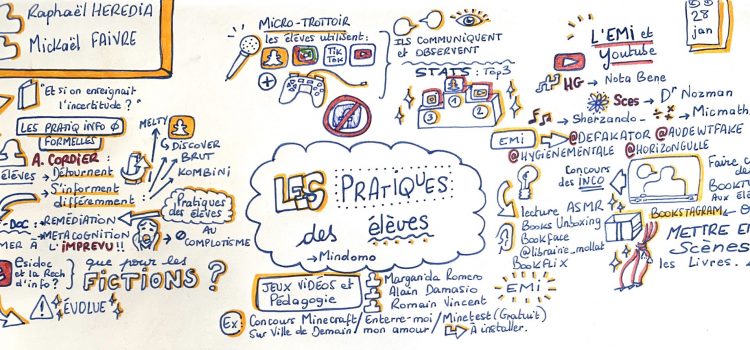 Raphaël HEREDIA
Mickaël FAIVRE
"Et si on enseignait
l'incertitude ?"
LES PRATIQ INFO Ø
FORMELLES
A. CORDIER :
ÉLÈVES → Détournent
→ S'informent
différemment :
-DOC: → REMÉDIATION
→ METACOGNITION
MER À L'IMPREVU!!
Esidoc
et la Rech
d'info ?
que pour les
FICTIONS ?
ÉVOLUE
MELTY
DISCOVER
BRUT
KOMBINI
Pratiques
des élèves
AU
COMPLOTISME
MICRO-TROTTOIR
les élèves utilisent:
TIK
TOK
ILS COMMUNIQUENT
et OBSERVENT
STATS: Top3
3 1 2
LES PRATIQUES
des élèves
→ Mindomo
JEUX VIDÉOS et
Pédagogie
Margarida Romero
Alain Damasio
Romain Vincent
Ex: Concours Minecraft/ Enterre-moi/ Minetest (Gratuit)
Sur Ville de Demain/ mon amour/ À installer.
28
jan
L'EMI et
Youtube
HG → Nota Bene
Sces → Dr Nozman
→ Sherzando_ → Micmath
EMI → @DEFAKATOR @AUDEWTFAKE
@HYGIENEMENTALE @HORIZONGULLE
Concours
des INCO
Faire
des
BOOKT
AUX ÉL
lecture ASMR
Books Unboxing
Bookface
@librairie_mollat
BOOKFLIX
EMI
BOOKSTAGRAM
METTRE E
SCÈNES
les Livres.